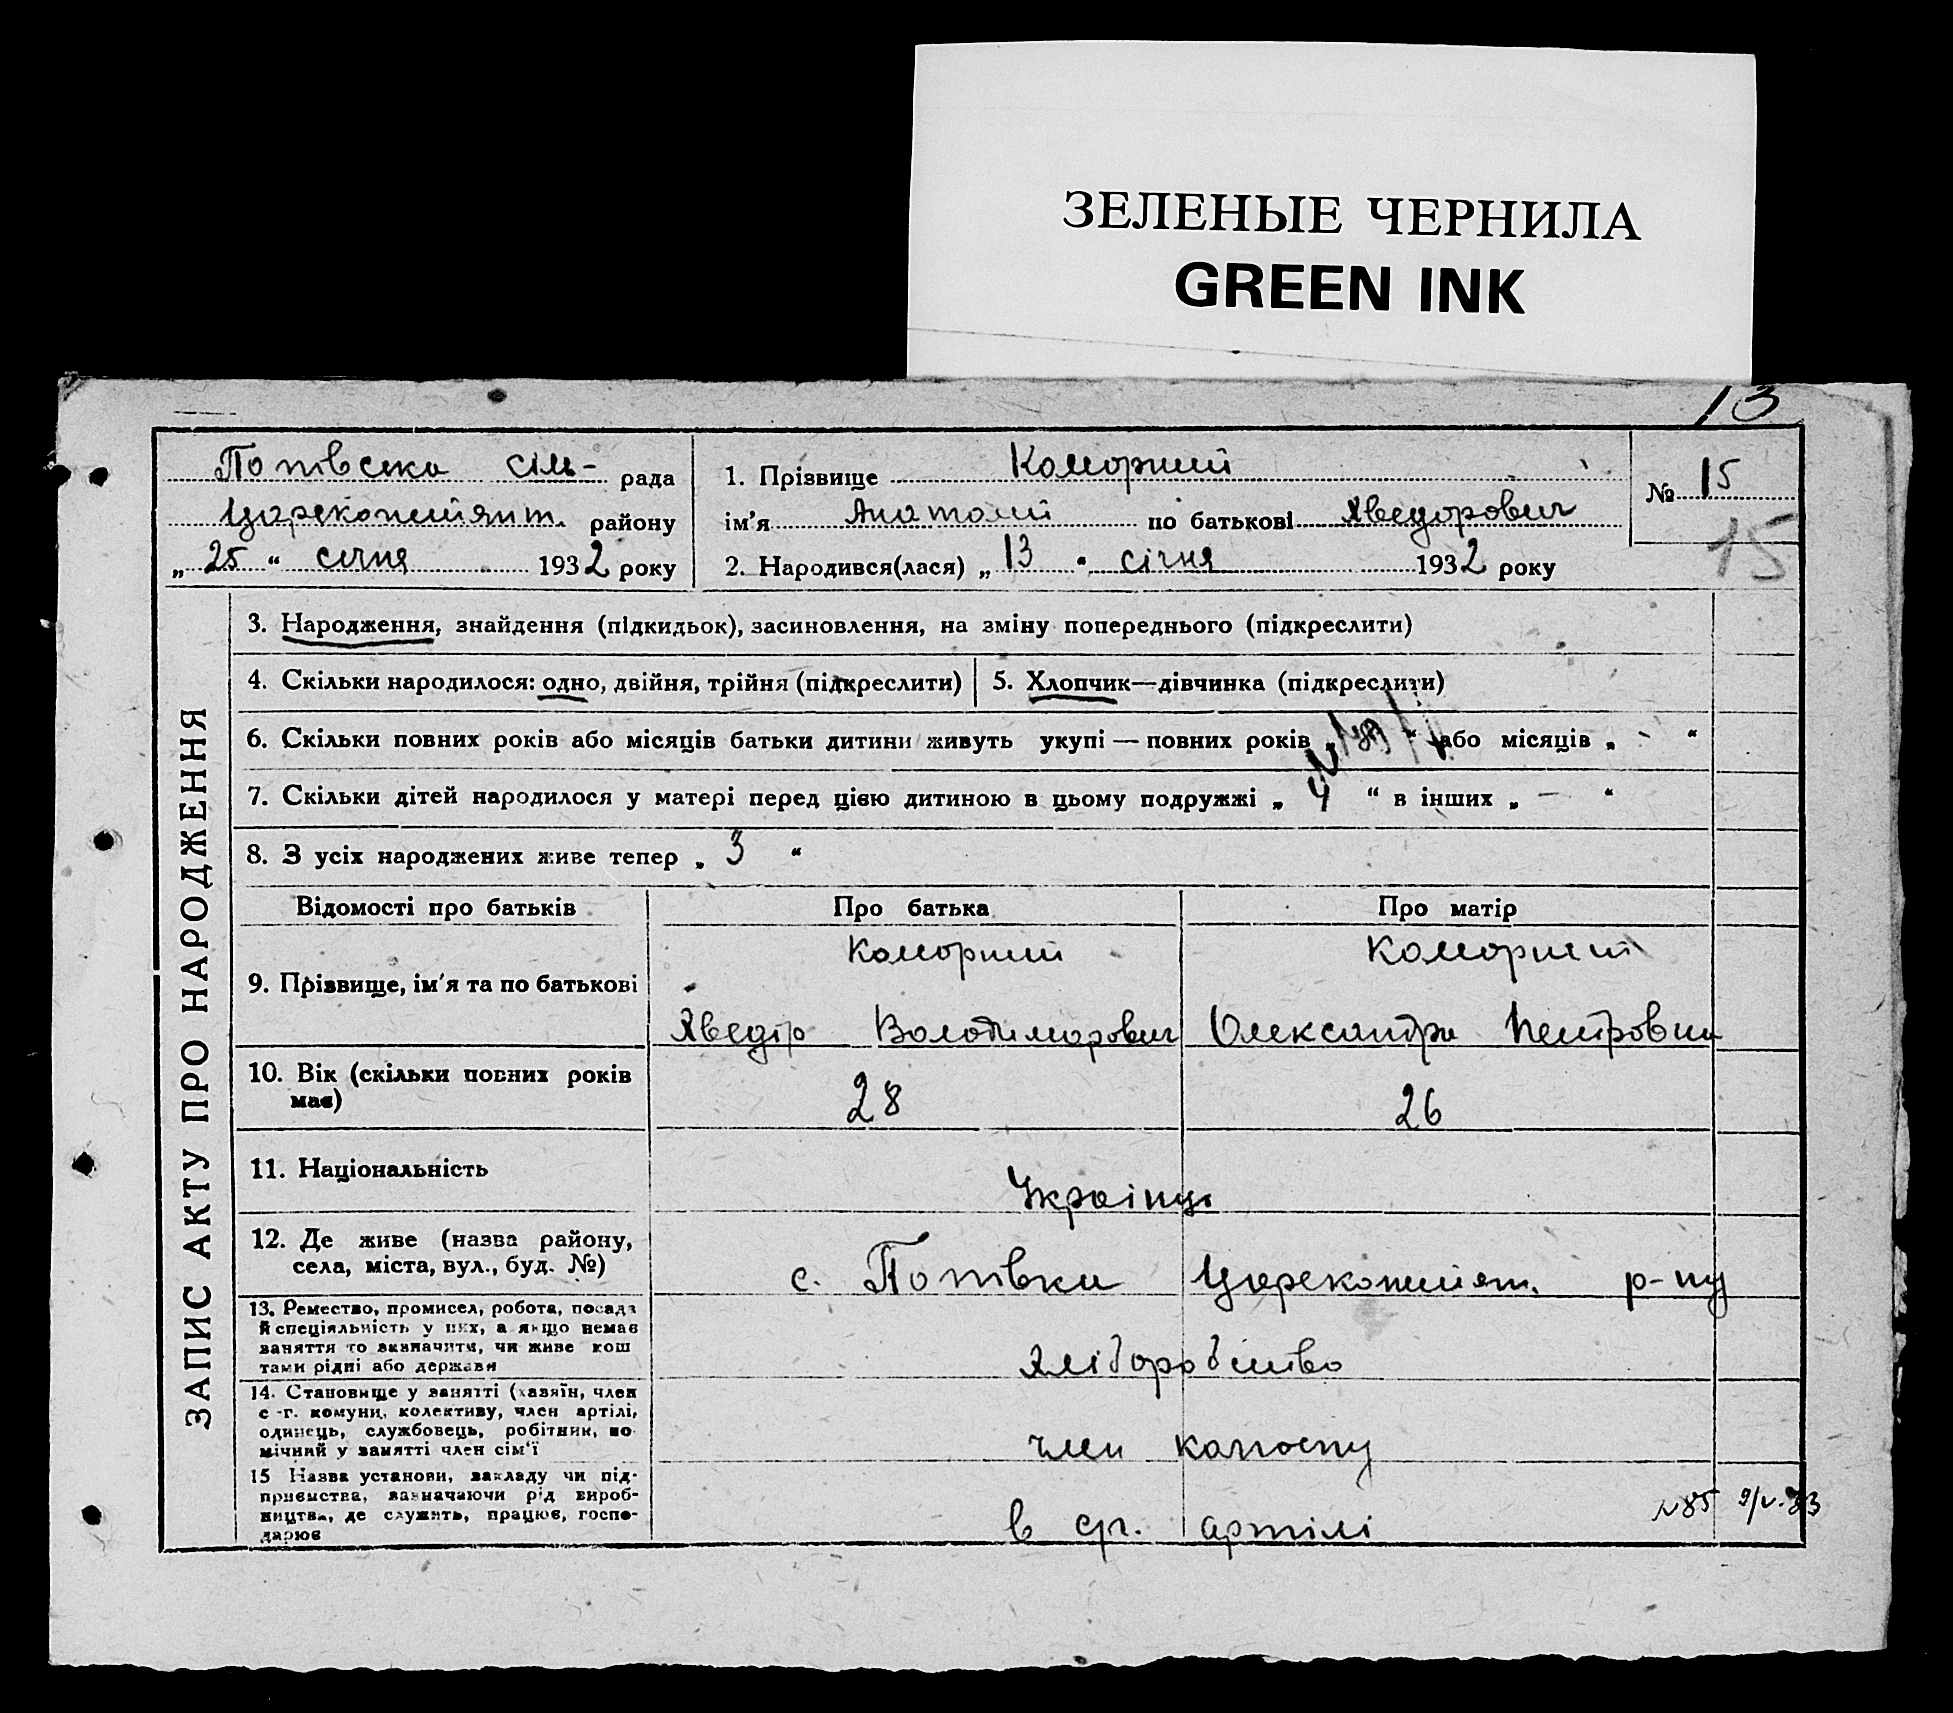 ЗЕЛЕНЫЕ ЧЕРНИЛА
GREEN INK
13
Потівська сіль- рада
Царекопитянт. району
„ 25 “ січня 1932 року
1. Прізвище Коморний
ім’я Анатолій по батькові Хведорович
2. Народився(лася) „ 13 “ січня 1932 року
№ 15
15
ЗАПИС АКТУ ПРО НАРОДЖЕННЯ
3. Народження, знайдення (підкидьок), засиновлення, на зміну попереднього (підкреслити)
4. Скільки народилося: одно, двійня, трійня (підкреслити)
5. Хлопчик—дівчинка (підкреслити)
6. Скільки повних років або місяців батьки дитини живуть укупі — повних років „ “ або місяців „ - “
7. Скільки дітей народилося у матері перед цією дитиною в цьому подружжі „ 4 “ в інших „ — “
8. З усіх народжених живе тепер „ 3 “
Відомості про батьків Про батька Про матір
9. Прізвище, ім'я та по батькові
Коморний
Хведір Володимирович
Коморний
Олександра Петровна
10. Вік (скільки повних років
має)
28 26
11. Національність
Українці
12. Де живе (назва району,
села, міста, вул., буд. №)
с. р-ну
13. Ремество, промисел, робота, посада
й спеціяльність у них, а якщо немає
заняття то визначити, чи живе кош
тами рідні або держави
хліборобство
14. Становище у занятті (хазяїн, член
с -г. комуни, колективу, член артілі,
одинець, службовець, робітник, по
мічний у занятті член сім'ї
член колгоспу
15 Назва установи, закладу чи під-
приємства, зазначаючи рід вироб-
ництва, де служить, працює, госпо-
дарює
в с/г. артілі
N85 9/V-33